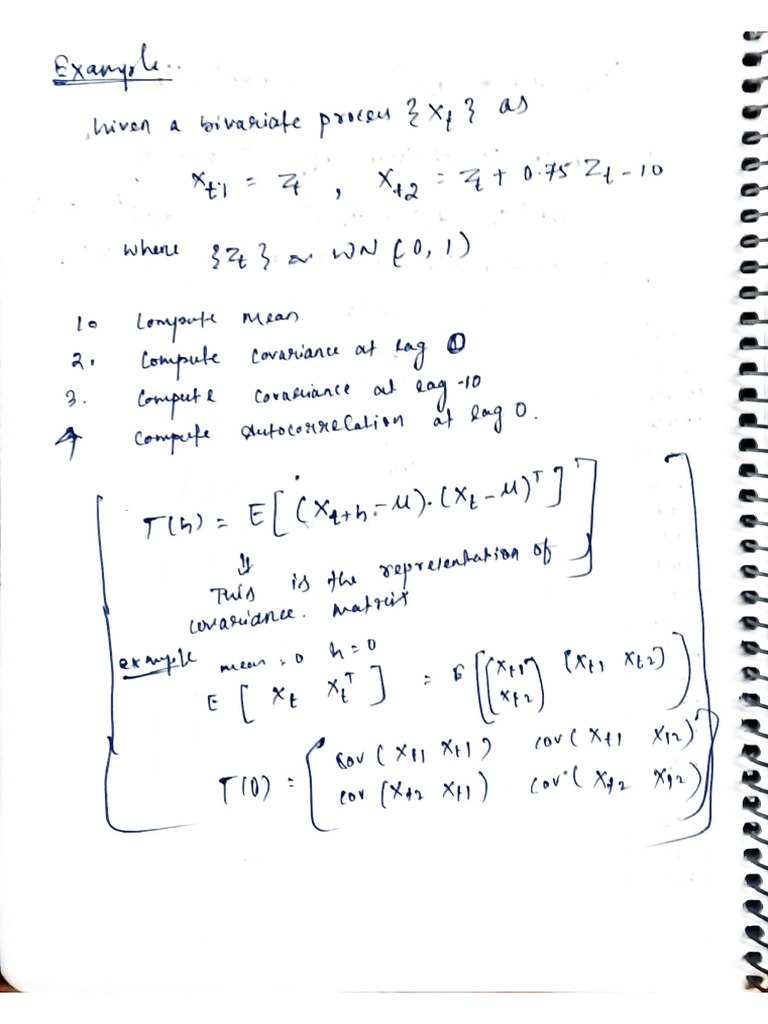 Example..
Given a bivariate process {X_t} as
X_t1 = Z_t , X_t2 = Z_t + 0.75 Z_t-10
where {Z_t} ~ WN (0, 1)
1. Compute mean
2. Compute covariance at lag 0
3. Compute covariance at lag -10
4 Compute autocorrelation at lag 0.
Γ(h) = E[(X_t+h - μ).(X_t - μ)^T]
⇓
This is the representation of
covariance. matrix
example mean = 0 h = 0
E [ X_t X_t^T ] = E [(X_t1 X_t2) (X_t1 X_t2)]
Γ(0) = ( cov (X_t1 X_t1) cov (X_t1 X_t2)
cov (X_t2 X_t1) cov (X_t2 X_t2) )